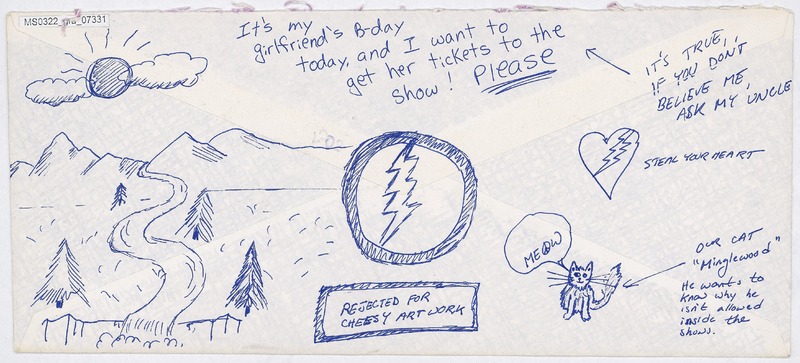 MS0322_ms_07331
It's my
girlfriend's B-day
today, and I want to
get her tickets to the
show! Please
IT'S TRUE,
IF YOU DON'T
BELIEVE ME,
ASK MY UNCLE
STEAL YOUR HEART
MEOW
OUR CAT
"Minglewood"
He wants to
know why he
isn't allowed
inside the
shows.
REJECTED FOR
CHEESY ARTWORK